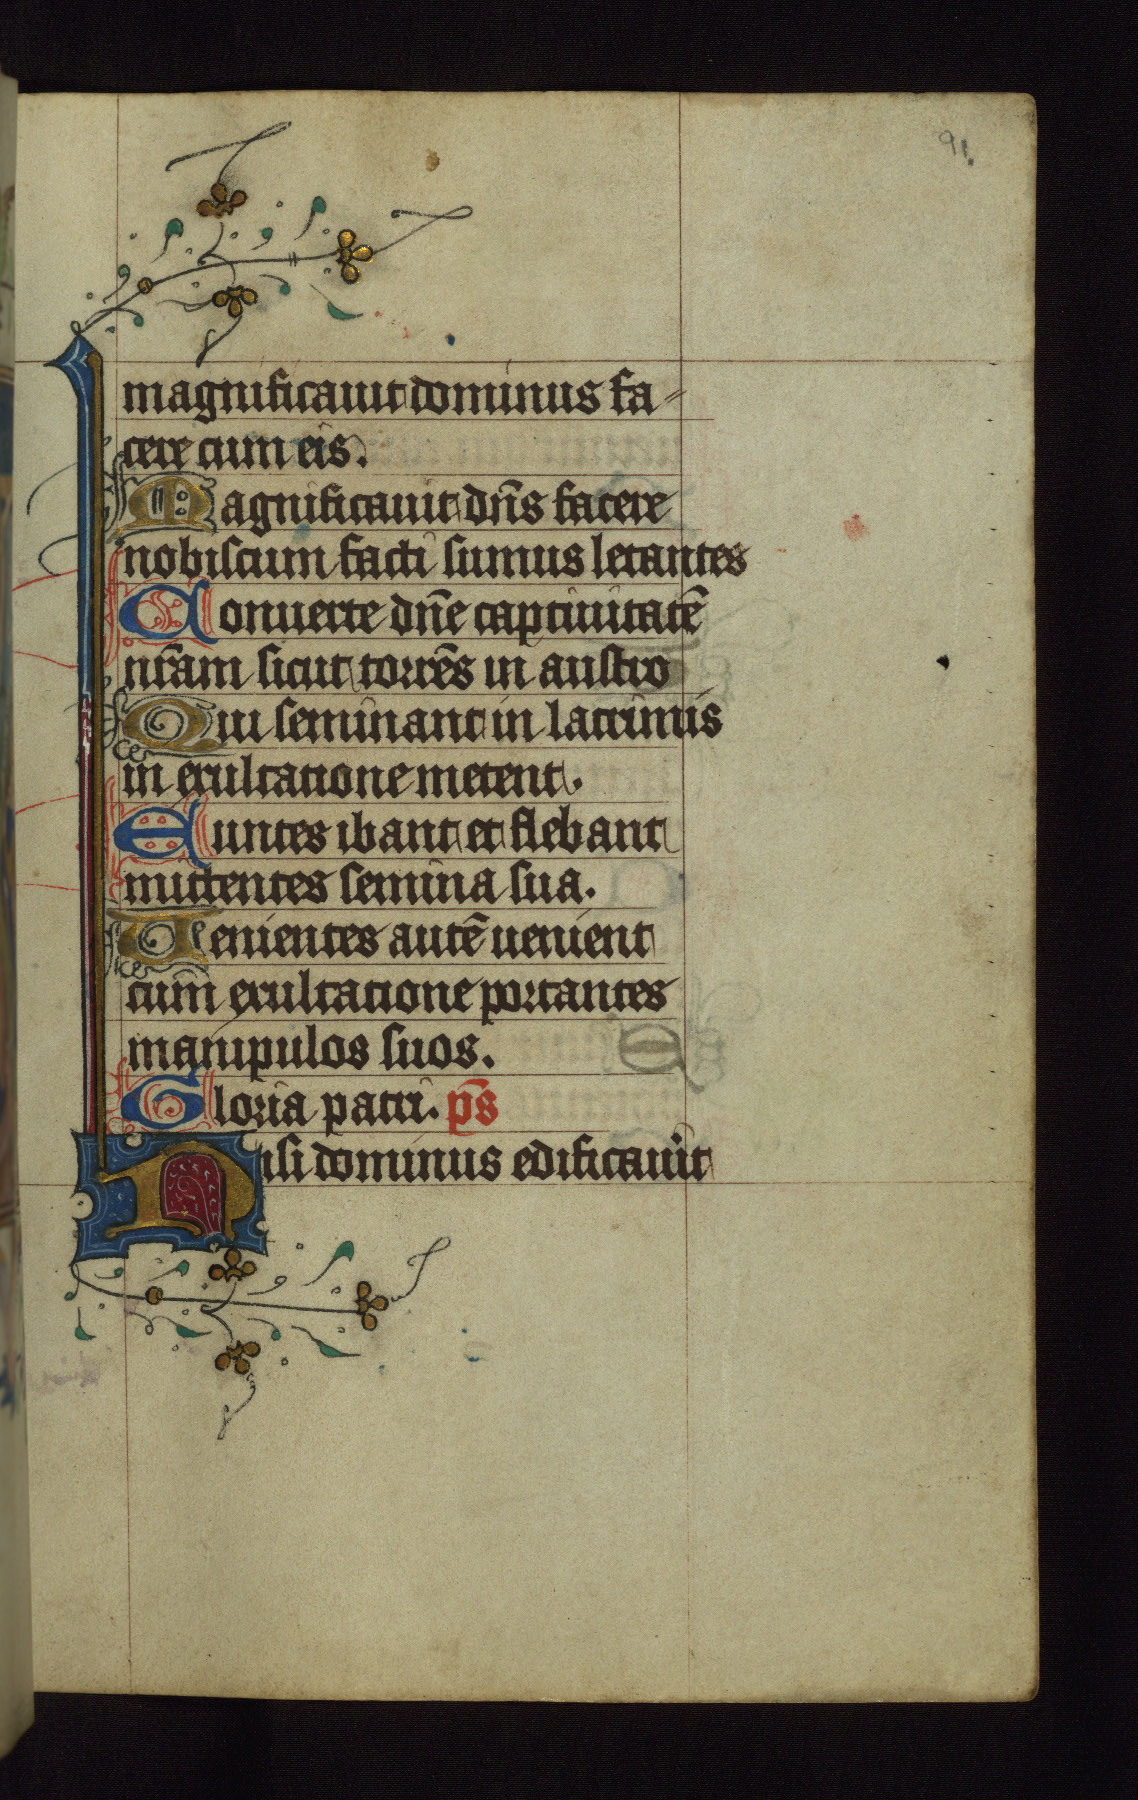 91.
magnificauit dominus fa-
cere cum eis.
Magnificauit dñs facere
nobiscum facti sumus letantes
Conuerte dñe captiuitatē
nr̄am sicut torrēs in austro
Qui seminant in lacrimis
in exultatione metent.
Euntes ibant et flebant
mittentes semina sua.
Uenientes autē uenient
cum exultatione portantes
manipulos suos.
Gloria patri. ps̄
Nisi dominus edificauit